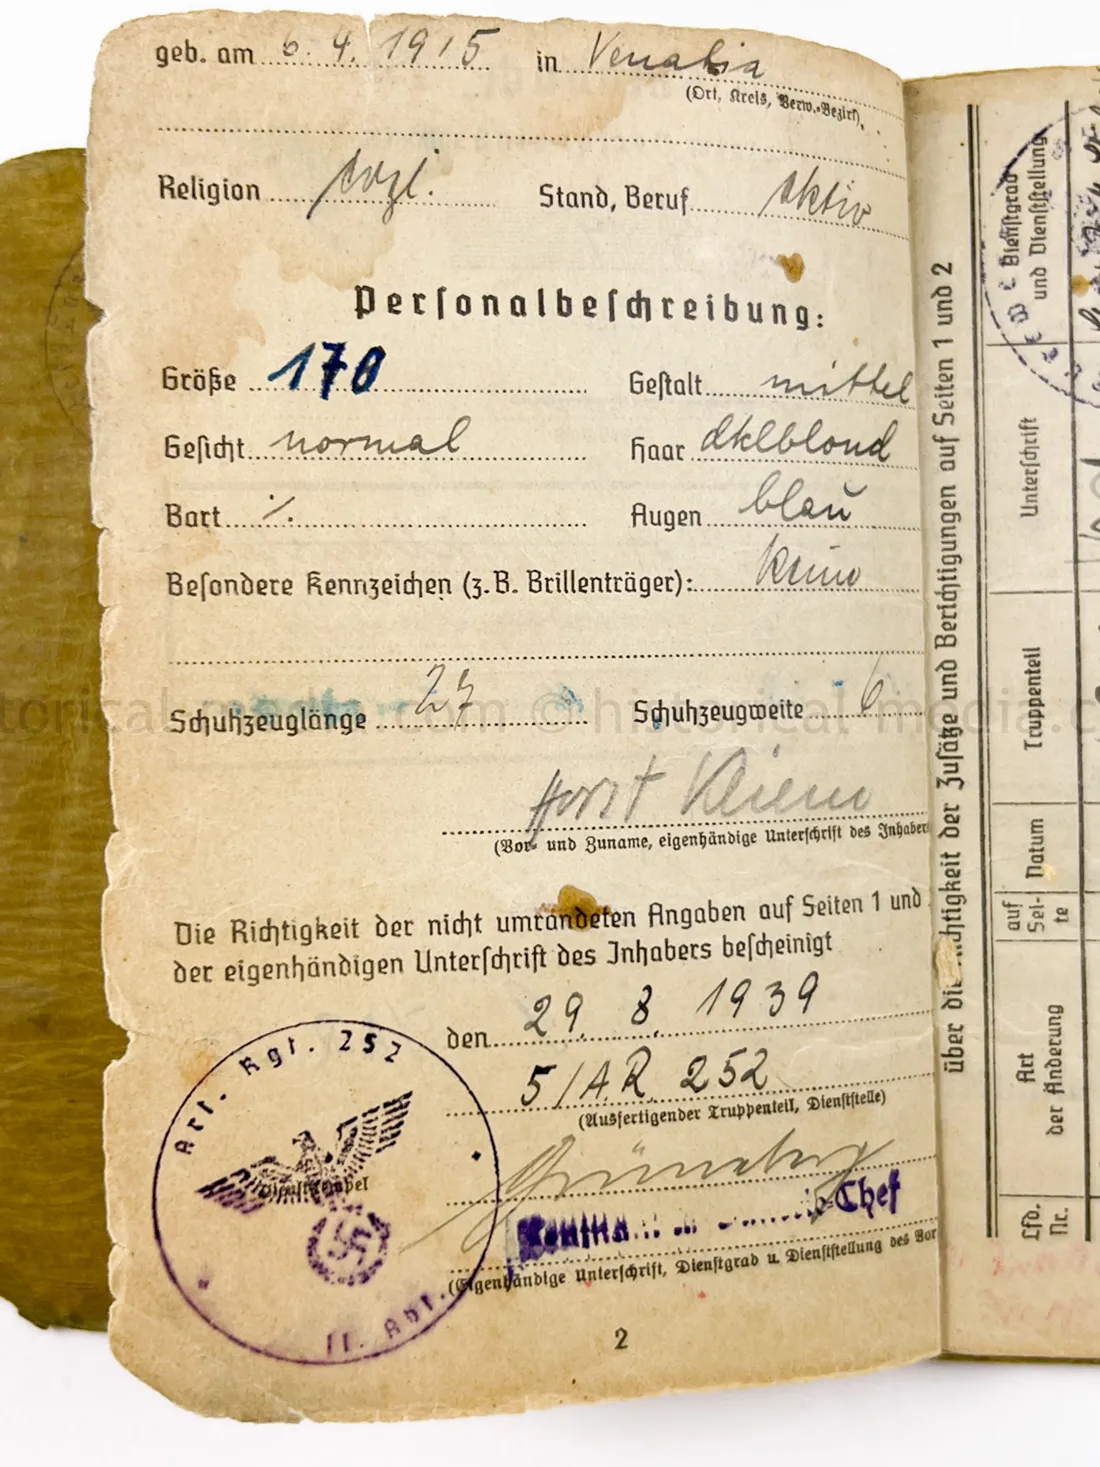 geb. am 6. 4. 1915 in Venabia
(Ort, Kreis, Verw.-Bezirk)
Religion evgl. Stand, Beruf aktiv
Personalbeschreibung:
Größe 170 Gestalt mittel
Gesicht normal Haar dklblond
Bart ·/. Augen blau
Besondere Kennzeichen (z. B. Brillenträger): keine
Schuhzeuglänge 27 Schuhzeugweite 6
historical-media.com © historical-media.c
Horst Kliem
(Vor- und Zuname, eigenhändige Unterschrift des Inhabers
Die Richtigkeit der nicht umrandeten Angaben auf Seiten 1 und
der eigenhändigen Unterschrift des Inhabers bescheinigt
den 29. 8. 1939
5/A.R. 252
(Ausfertigender Truppenteil, Dienststelle)
Hauptmann u. Batterie-Chef
(Eigenhändige Unterschrift, Dienstgrad u. Dienststellung des Vor
Art. Rgt. 252
Dienststempel
II. Abt.
2
über die Richtigkeit der Zusätze und Berichtigungen auf Seiten 1 und 2
Lfd. Nr.
Art der Änderung
auf Sei-te
Datum
Truppenteil
Unterschrift
Dienstgrad und Dienststellung